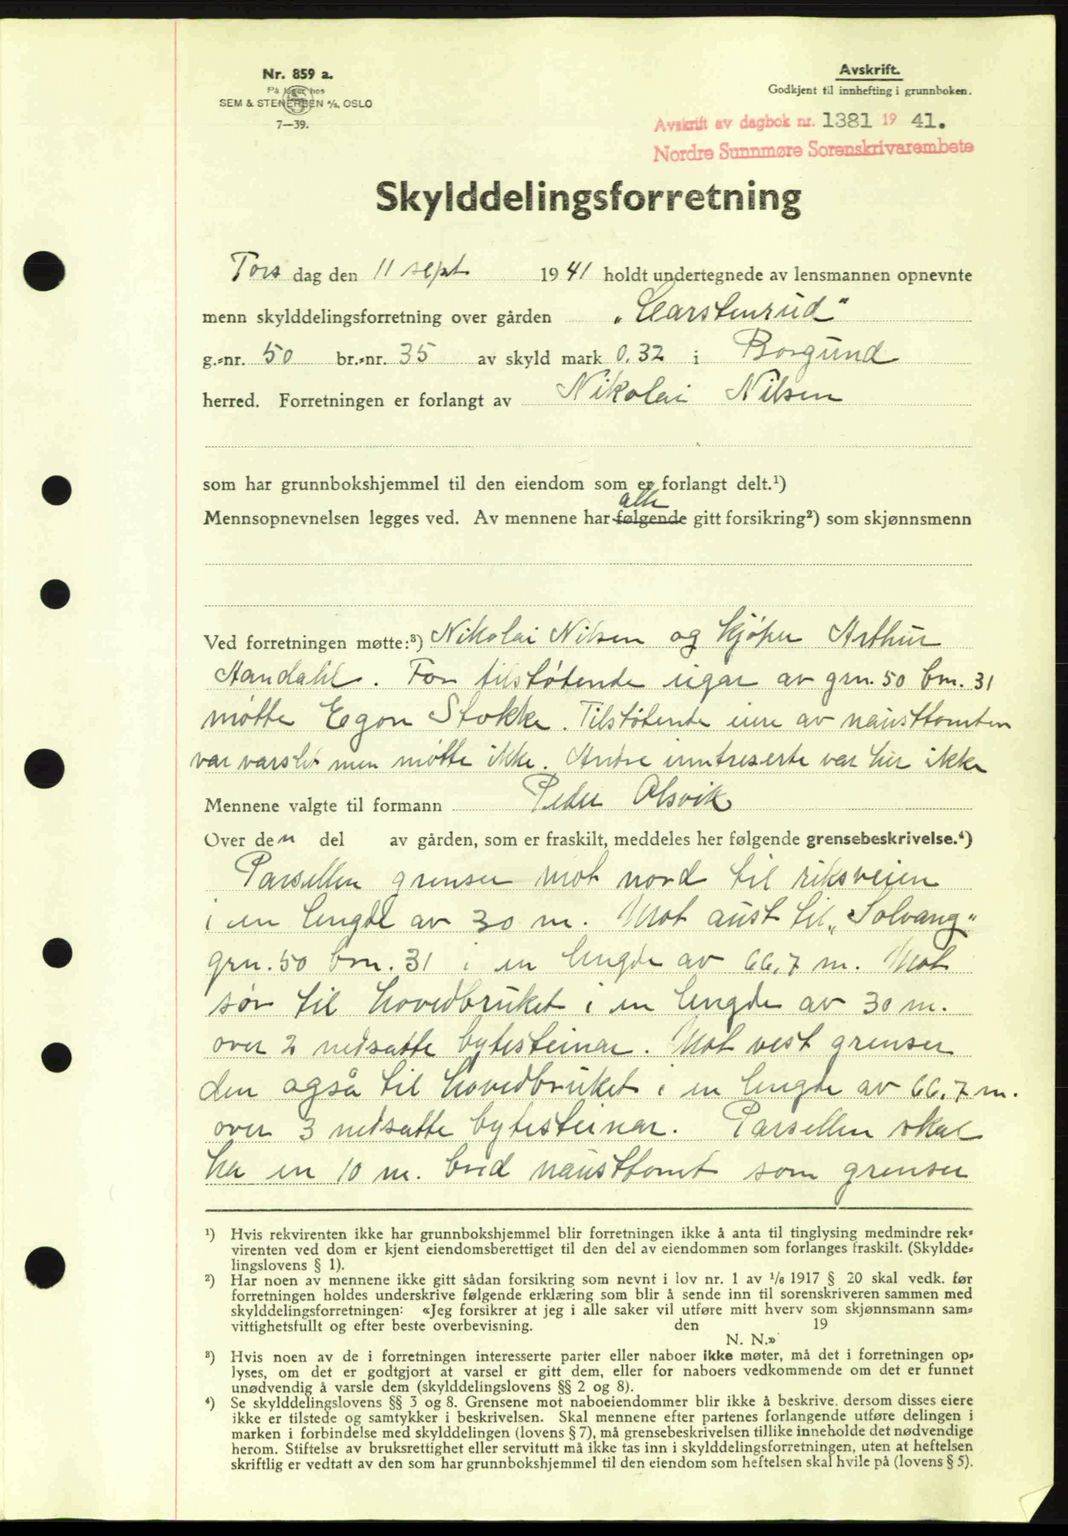 Nr. 859 a.
På lager hos
SEM & STENERSEN A/S, OSLO
7—39.
Avskrift.
Godkjent til innhefting i grunnboken.
Avskrift av dagbok nr. 1381 19 41.
Nordre Sunnmøre Sorenskrivarembete
Skylddelingsforretning
Tors dag den 11 sept 19 41 holdt undertegnede av lensmannen opnevnte
menn skylddelingsforretning over gården "Carstenrud"
g.-nr. 50 br.-nr. 35 av skyld mark 0.32 i Borgund
herred. Forretningen er forlangt av Nikolai Nilsen
som har grunnbokshjemmel til den eiendom som er forlangt delt.¹)
alle
Mennsopnevnelsen legges ved. Av mennene har følgende gitt forsikring²) som skjønnsmenn
Ved forretningen møtte:³) Nikolai Nilsen og kjøper Arthur
Handahl. For tilstøtende eigar av grn. 50 brn. 31
møtte Egon Stokke. Tilstøtende eiere av nausttomten
var varslet men møtte ikke. Andre interesserte var her ikke
Mennene valgte til formann Peder Alsvik
Over den del av gården, som er fraskilt, meddeles her følgende grensebeskrivelse.⁴)
Parsellen grenser mot nord til riksveien
i en lengde av 30 m. Mot aust til "Solvang"
grn. 50 brn. 31 i en lengde av 66,7 m. Mot
sør til hovedbruket i en lengde av 30 m.
over 2 nedsatte bytesteinar. Mot vest grenser
den også til hovedbruket i en lengde av 66,7 m.
over 3 nedsatte bytesteinar. Parsellen skal
ha en 10 m. bred nausttomt som grenser
¹) Hvis rekvirenten ikke har grunnbokshjemmel blir forretningen ikke å anta til tinglysing medmindre rek-
virenten ved dom er kjent eiendomsberettiget til den del av eiendommen som forlanges fraskilt. (Skyldde-
lingslovens § 1).
²) Har noen av mennene ikke gitt sådan forsikring som nevnt i lov nr. 1 av 1/6 1917 § 20 skal vedk. før
forretningen holdes underskrive følgende erklæring som blir å sende inn til sorenskriveren sammen med
skylddelingsforretningen: «Jeg forsikrer at jeg i alle saker vil utføre mitt hverv som skjønnsmann sam-
vittighetsfullt og efter beste overbevisning. den 19
N. N.»
³) Hvis noen av de i forretningen interesserte parter eller naboer ikke møter, må det i forretningen op-
lyses, om det er godtgjort at varsel er gitt dem, eller for naboers vedkommende om det er funnet
unødvendig å varsle dem (skylddelingslovens §§ 2 og 8).
⁴) Se skylddelingslovens §§ 3 og 8. Grensene mot naboeiendommer blir ikke å beskrive, dersom disses eiere
ikke er tilstede og samtykker i beskrivelsen. Skal mennene efter partenes forlangende utføre delingen i
marken i forbindelse med skylddelingen (lovens § 7), må grensebeskrivelsen tillike inneholde det nødvendige
herom. Stiftelse av bruksrettighet eller servitutt må ikke tas inn i skylddelingsforretningen, uten at heftelsen
skriftlig er vedtatt av den som har grunnbokshjemmel til den eiendom som heftelsen skal hvile på (lovens § 5).